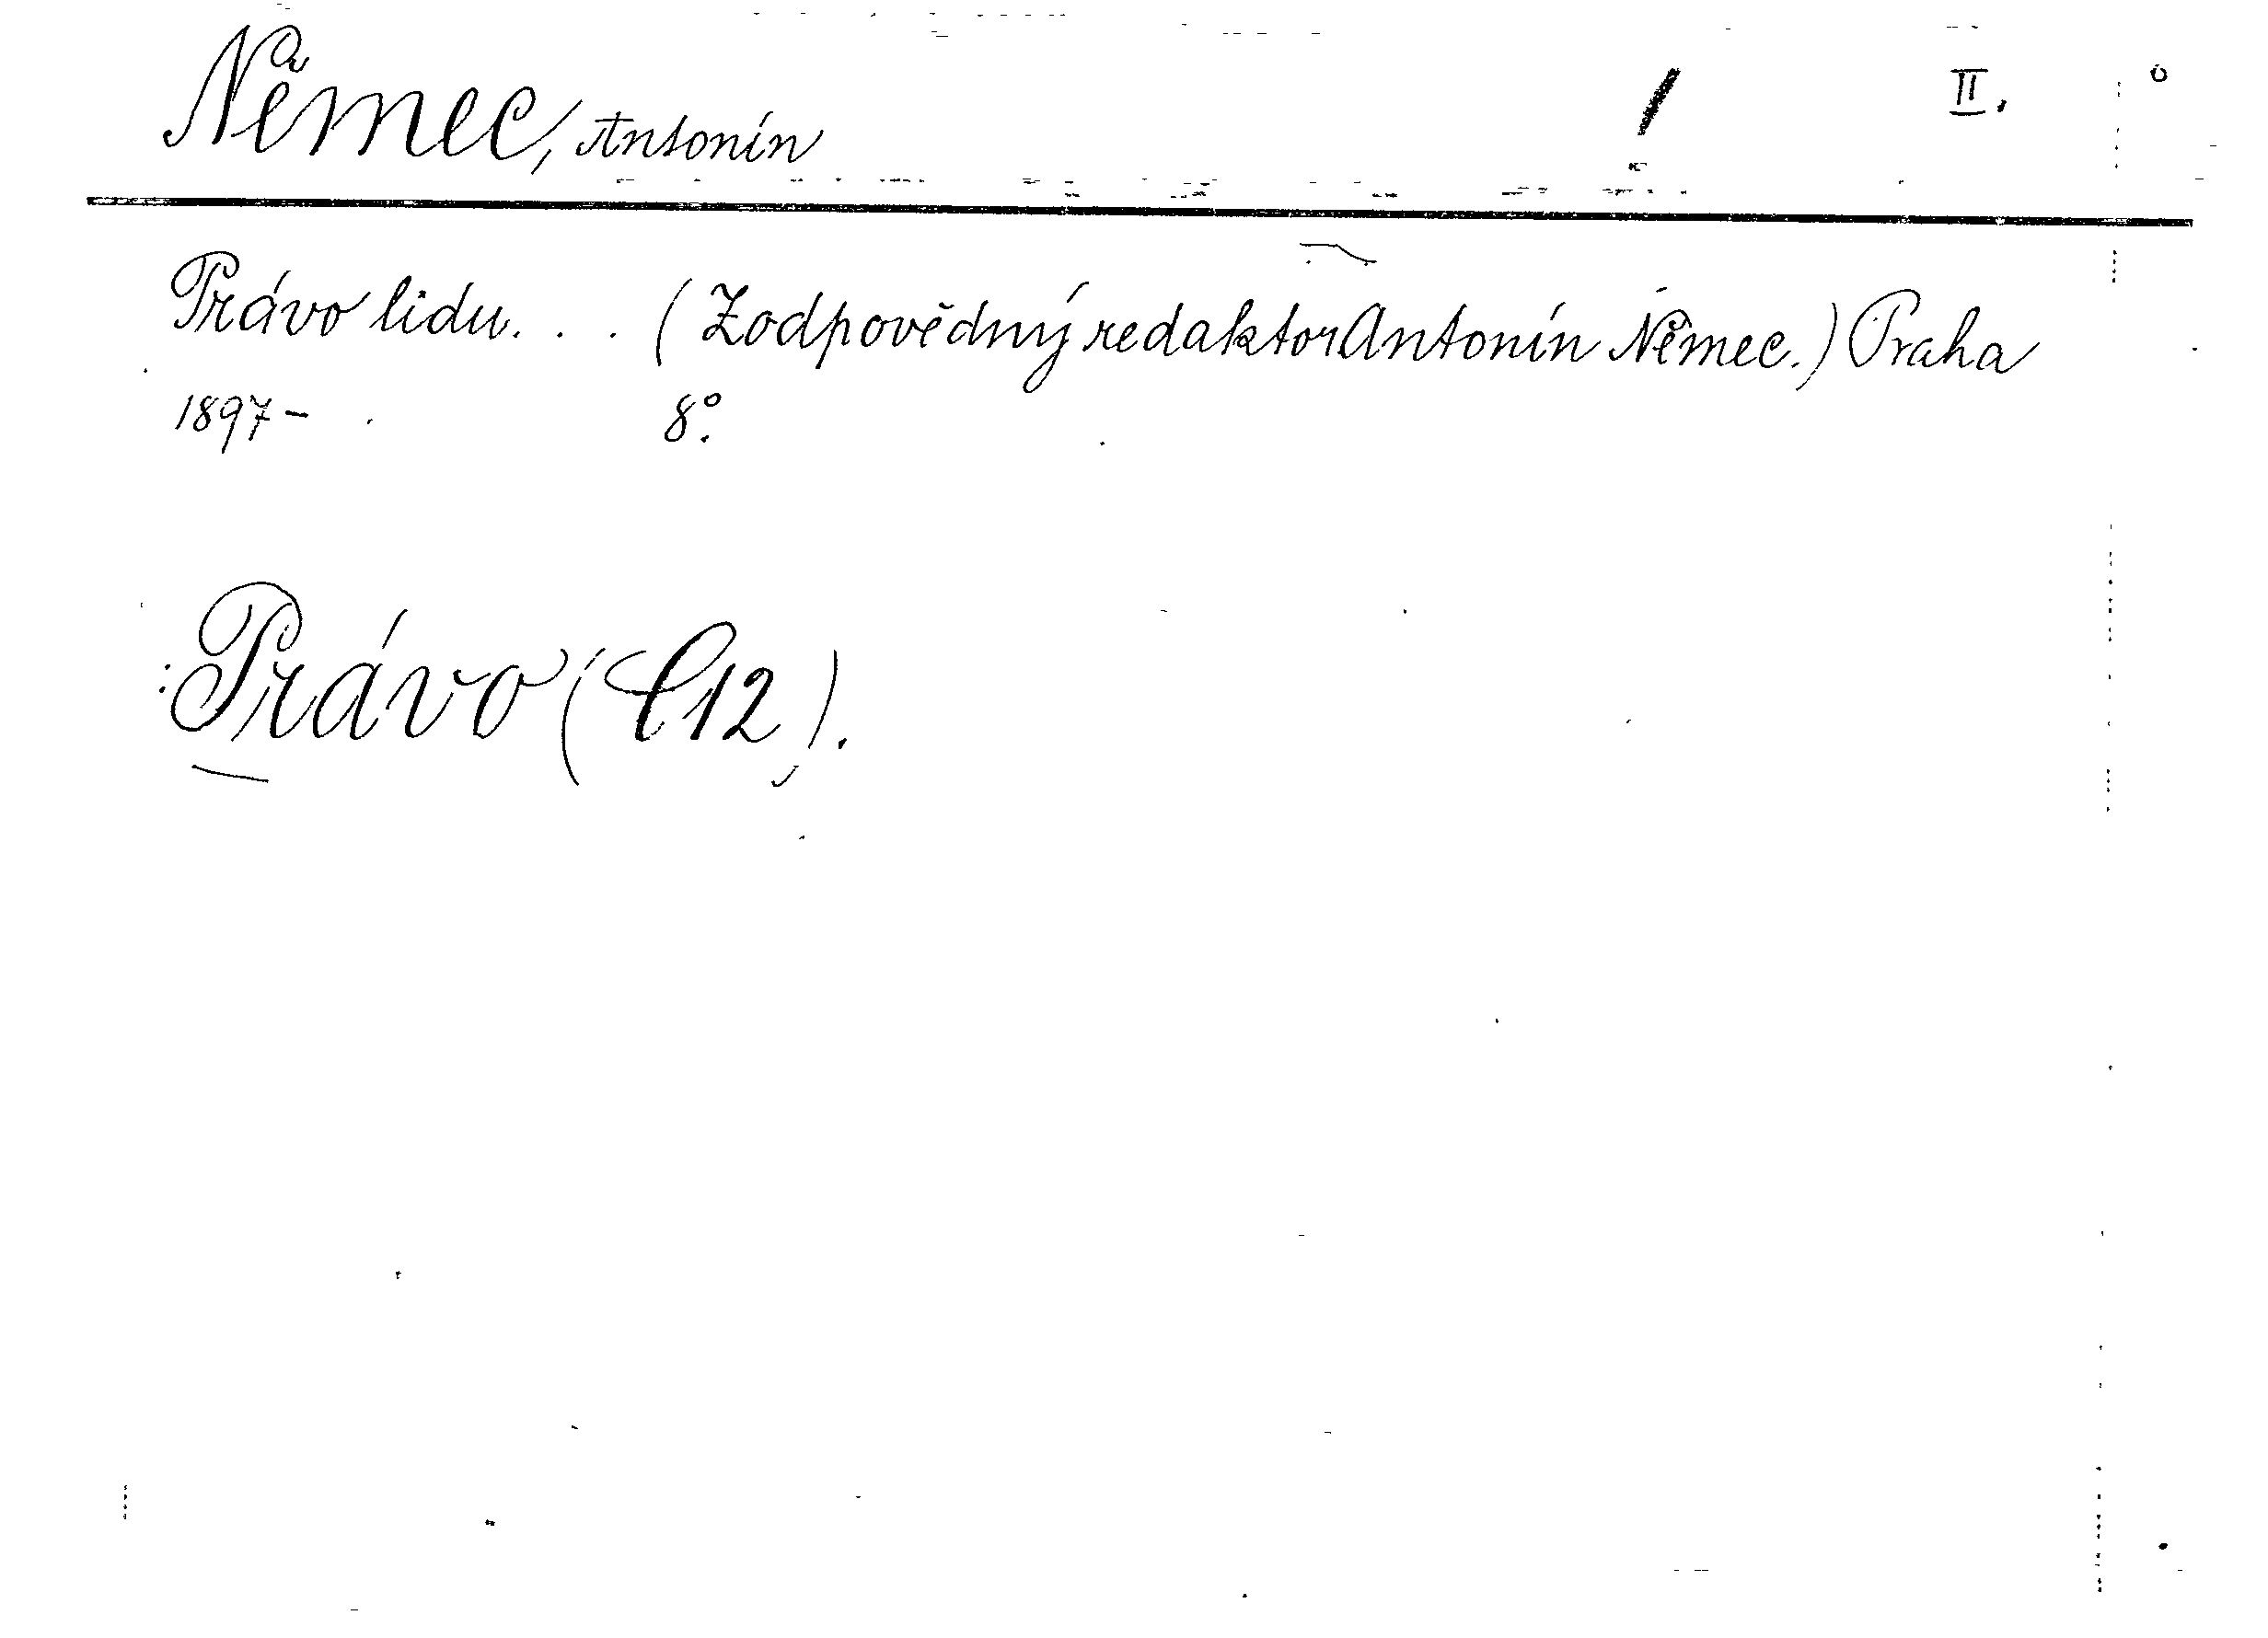 Němec, Antonín / II.
Právo lidu. . . (Zodpovědný redaktor Antonín Němec.) Praha
1897- 8°.
Právo (C12).